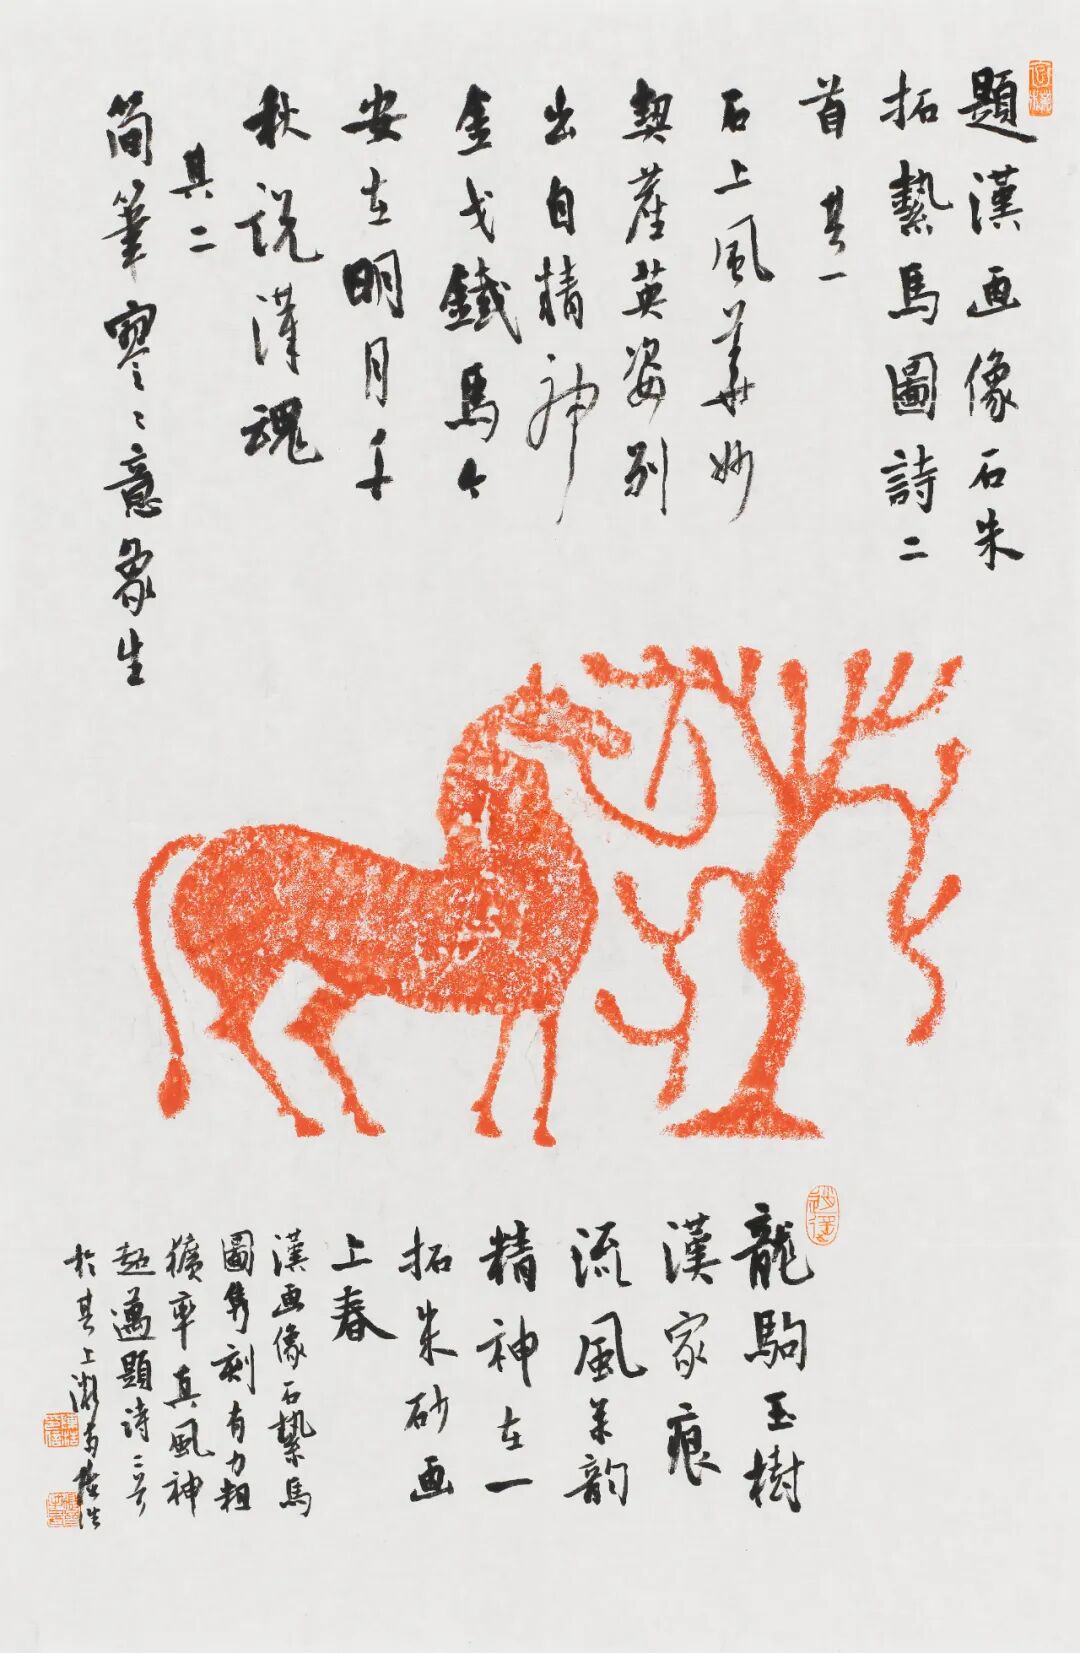 題漢画像石朱
拓縶馬圖詩二
首 其一
石上風華妙
契英姿别
出自精神
金戈鐵馬今
安在明月千
秋説漢魂
其二
简筆寥〻意象生
龍駒玉樹
漢家痕
流風韵
精神在一
拓朱砂画
上春
漢画像石縶馬
圖隽刻有力粗
獷率真風神
超邁題詩二首
於其上